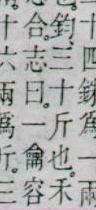 二十四銖爲一兩
鈞三十斤也。禾
合。志曰。一龠容
十六兩爲斤。三